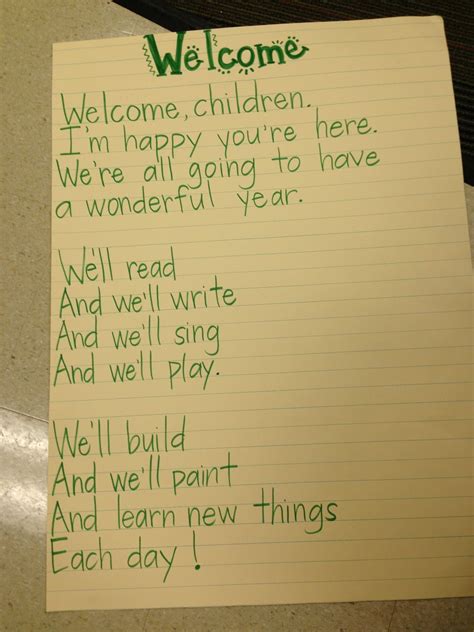 Welcome
Welcome, children.
I'm happy you're here.
We're all going to have
a wonderful year.
We'll read
And we'll write
And we'll sing
And we'll play.
We'll build
And we'll paint
And learn new things
Each day!